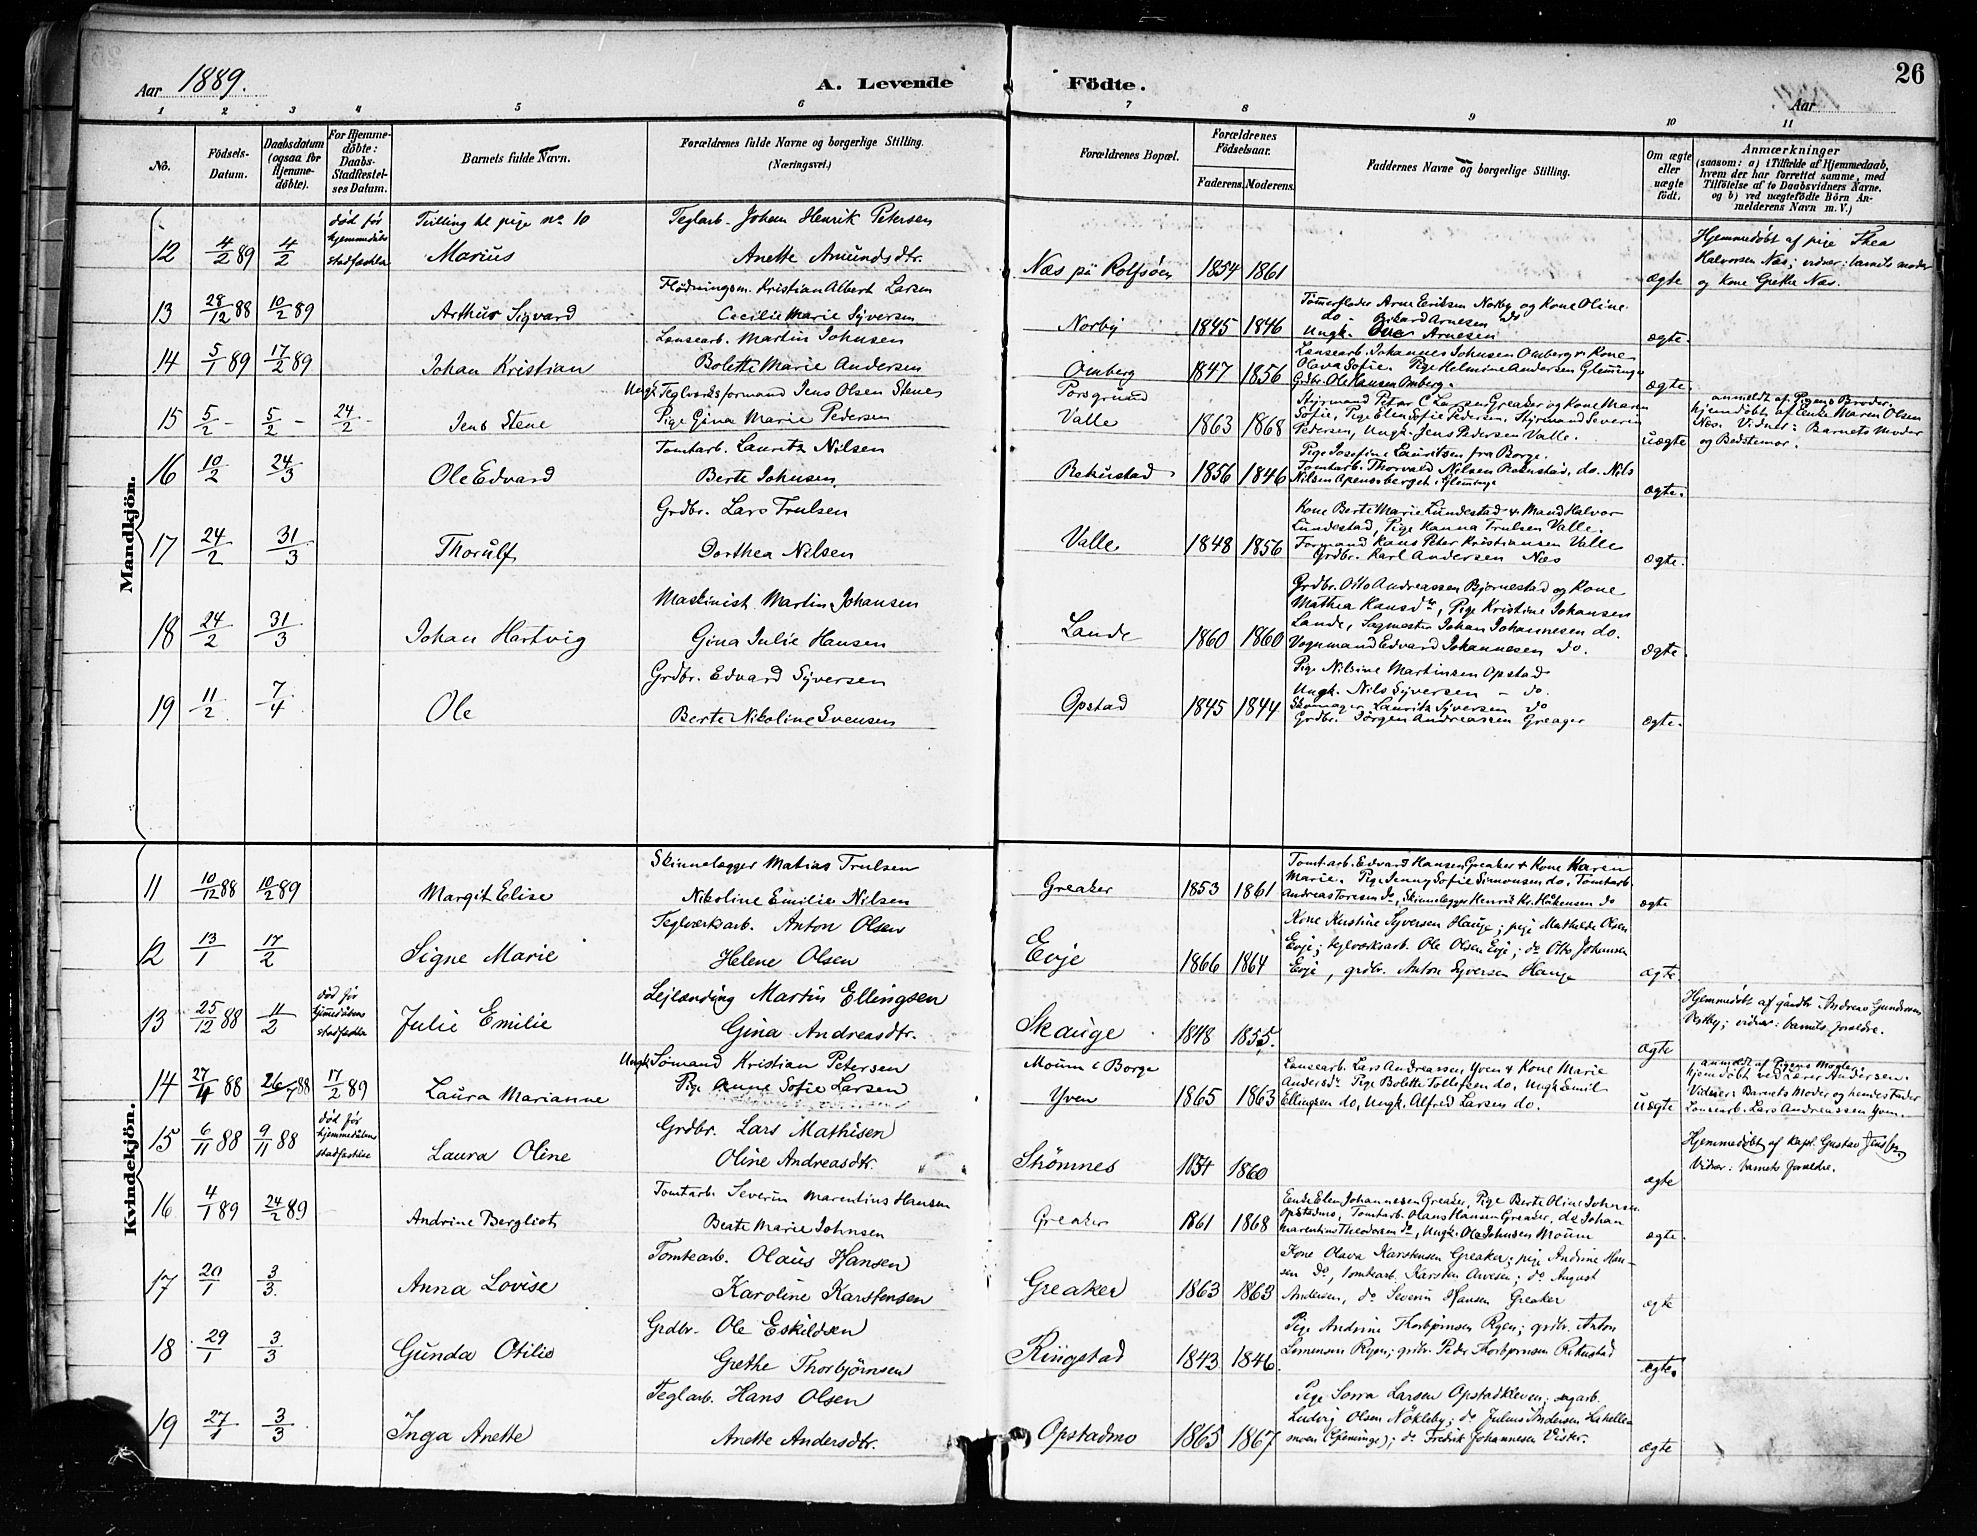 Aar 1889.
A. Levende Födte.
Aar
26
1 2 3 4 5 6 7 8 9 10 11
No.
Födsels-Datum.
Daabsdatum (ogsaa for Hjemme-döbte).
For Hjemme-döbte: Daabs-Stadfæstel-ses Datum.
Barnets fulde Navn.
Forældrenes fulde Navne og borgerlige Stilling.
(Næringsvei.)
Forældrenes Bopæl.
Forældrenes Födselsaar.
Faderens. Moderens.
Faddernes Navne og borgerlige Stilling.
Om ægte eller uægte födt.
Anmærkninger
(saasom: a) i Tilfælde af Hjemmedaab,
hvem der har forrettet samme, med
Tilföielse af to Daabsvidners Navne.
og b) ved uægtefödte Börn An-
melderens Navn m. V.)
Mandkjön.
12 4/2 89 4/2 død før hjemmedåbs stadfæstela Tvilling til pige no 10 Marius
Teglarb. Johan Henrik Petersen
Anette Amundsdtr.
Næs på Rolfsøen 1854 1861 ægte
Hjemmedøbt af pige Thea
Halvorsen Næs; vidner: barnets moder
og kone Grethe Næs.
13 28/12 88 10/2 89 Arthur Sigvard
Flødningsm. Kristian Albert Larsen
Cecilie Marie Syversen
Norby 1845 1846
Tømmerfløder Arne Eriksen Norby og Kone Oline
do Rikard Arnesen do
Ungk. Ove Arnesen
ægte.
14 5/1 89 17/2 89 Johan Kristian
Lonsearb. Martin Johnsen
Bolette Marie Andersen
Omberg 1847 1856
Lonsearb. Johannes Johnsen Omberg & Kone
Olava Sofie. Pige Helmine Andersen Glemminge
Grdbr. Ole Hansen Omberg.
ægte.
15 5/2 - 5/2 - 24/2 - Jens Stene
Ungk. Teglverksformand Jens Olsen Stenes
Pige Gina Marie Pedersen
Porsgrund
Valle 1863 1868
Styrmand Peter C Larsen Greaker og Kone Maren
Sofie, Pige Elen Sofie Pedersen, Styrmand Severin
Pedersen, Ungk. Jens Pedersen Valle.
uægte
anmeldt af Pigens Broder.
hjemdøbt af Enke Maren Olsen
Næs. Vidner: Barnets Moder
og Bedstemor.
16 10/2 24/3 Ole Edvard
Tomtarb. Lauritz Nilsen
Berte Johnsen
Rekustad 1856 1846
Pige Josefine Lauritsen fra Borge.
Tomtarb. Thorvald Nilsen Rekustad, do. Nils
Nilsen Apenesberget i Glemminge
ægte.
17 24/2 31/3 Thorulf
Grdbr. Lars Trulsen
Dorthea Nilsen
Valle 1848 1856
Kone Berte Marie Lundestad & Mand Halvor
Lundestad, Pige Hanna Trulsen Valle.
Formand Hans Peter Kristiansen Valle
Grdbr. Karl Andersen Næs
ægte.
18 24/2 31/3 Johan Hartvig
Maskinist Martin Johansen
Gina Julie Hansen
Lande 1860 1860
Grdbr. Otto Andreassen Bjørnestad og Kone
Mathea Hansdtr, Pige Kristine Johansen
Lande, Sagmester Johan Johannesen do.
Vognmand Edvard Johannesen do.
ægte.
19 11/2 7/4 Ole
Grdbr. Edvard Syversen
Berte Nikoline Svensen
Opstad 1845 1844
Pige Nilsine Martinsen Opstad
Ungk. Nils Syversen - do.
Skomager Lauritz Syversen do
Grdbr. Jørgen Andreassen Greager
ægte.
Kvindekjön.
11 10/12 88 10/2 89 Margit Elise
Skinnelægger Matias Trulsen
Nikoline Emilie Nilsen
Greaker 1853 1861
Tomtarb. Edvard Hansen Greaker & Kone Karen
Marie. Pige Jenny Sofie Simonsen do. Tomtarb.
Andreas Toresen do, Skinnelægger Henrik Kr. Håkensen do
ægte
12 13/1 17/2 Signe Marie
Teglværksarb. Anton Olsen
Helene Olsen
Evje 1866 1864
Kone Kirstine Syversen Hauge; pige Mathilde Olsen
Evje; teglværksarb. Ole Olsen Evje; do Otto Johansen
Evje, grdbr. Anton Syversen Hauge
ægte
13 25/12 88 11/2 død før hjemmedåbens stadfæstela Julie Emilie
Lejlænding Martin Ellingsen
Gina Andreasdtr.
Skauge 1848 1855.
ægte
Hjemmedøbt af gårdbr. Andreas Gundersen
Østby; vidner: barnets forældre.
14 27/4 88 26/7 88 17/2 89 Laura Marianne
Ungk. Sømand Kristian Petersen
Pige Anne Sofie Larsen
Moum i Borge
Yven 1865 1863
Lonsearb. Lars Andreassen Yven & Kone Marie
Andersdtr Pige Bolette Tollefsen do, Ungk. Emil
Ellingsen do, Ungk. Alfred Larsen do.
uægte
anmeldt af Pigens Moder.
hjemdøbt ved Lærer Andersen.
Vidner: Barnets Moder og hendes Fader
Lonsearb. Lars Andreassen Yven.
15 6/11 88 9/11 88 død før hjemmedåbens stadfæstelse Laura Oline
Grdbr. Lars Mathisen
Oline Andreasdtr.
Strømnes 1854 1860
ægte
Hjemmedøbt af kapt. Gustav Jensen
Vidner: barnets forældre.
16 4/1 89 24/2 89 Andrine Bergliot
Tomtarb. Severin Marentius Hansen
Beate Marie Johnsen
Greaker 1861 1868
Enke Elen Johannesen Greaker, Pige Berte Oline Johnsen
Opstadmo, Tomtarb. Olaus Hansen Greaker, do Johan
Marentius Theodorsen do, Ungk. Ole Johnsen Moum
ægte.
17 20/1 3/3 Anna Lovise
Tomtearb. Olaus Hansen
Karoline Karstensen
Greaker 1863 1863
Kone Olava Karstensen Greaker; pige Andrine Han-
sen do, tomtearb. Karsten Arvesen; do August
Andersen, do Severin Hansen Greaker
ægte
18 29/1 3/3 Gunda Otilie
Grdbr. Ole Eskildsen
Grethe Thorbjørnsen
Ringstad 1843 1846.
Pige Andrine Thorbjørnsen Rygen; grdbr. Anton
Lorensen Rygen; grdbr. Peder Thorbjørnsen Rekustad
ægte.
19 27/1 3/3 Inga Anette
Teglarb. Hans Olsen
Anette Andersdtr.
Opstadmo 1865 1867
Pige Sorra Larsen Opstadkleven; sagarb.
Ludvig Olsen Nökleby; do Julius Andersen Lahelle-
moen (Glemminge); do Fredrik Johannesen Vister.
ægte